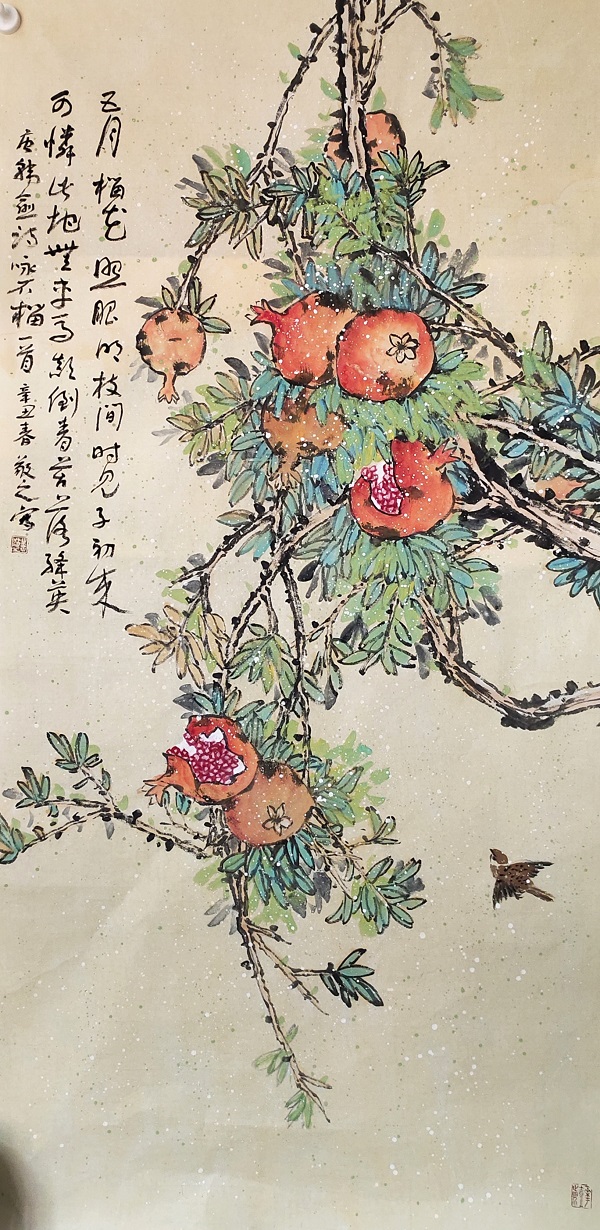 五月榴花照眼明枝间时见子初成
可憐此地無车马颠倒青苔落绛英
唐韩愈诗咏石榴一首 辛丑春 敬之写